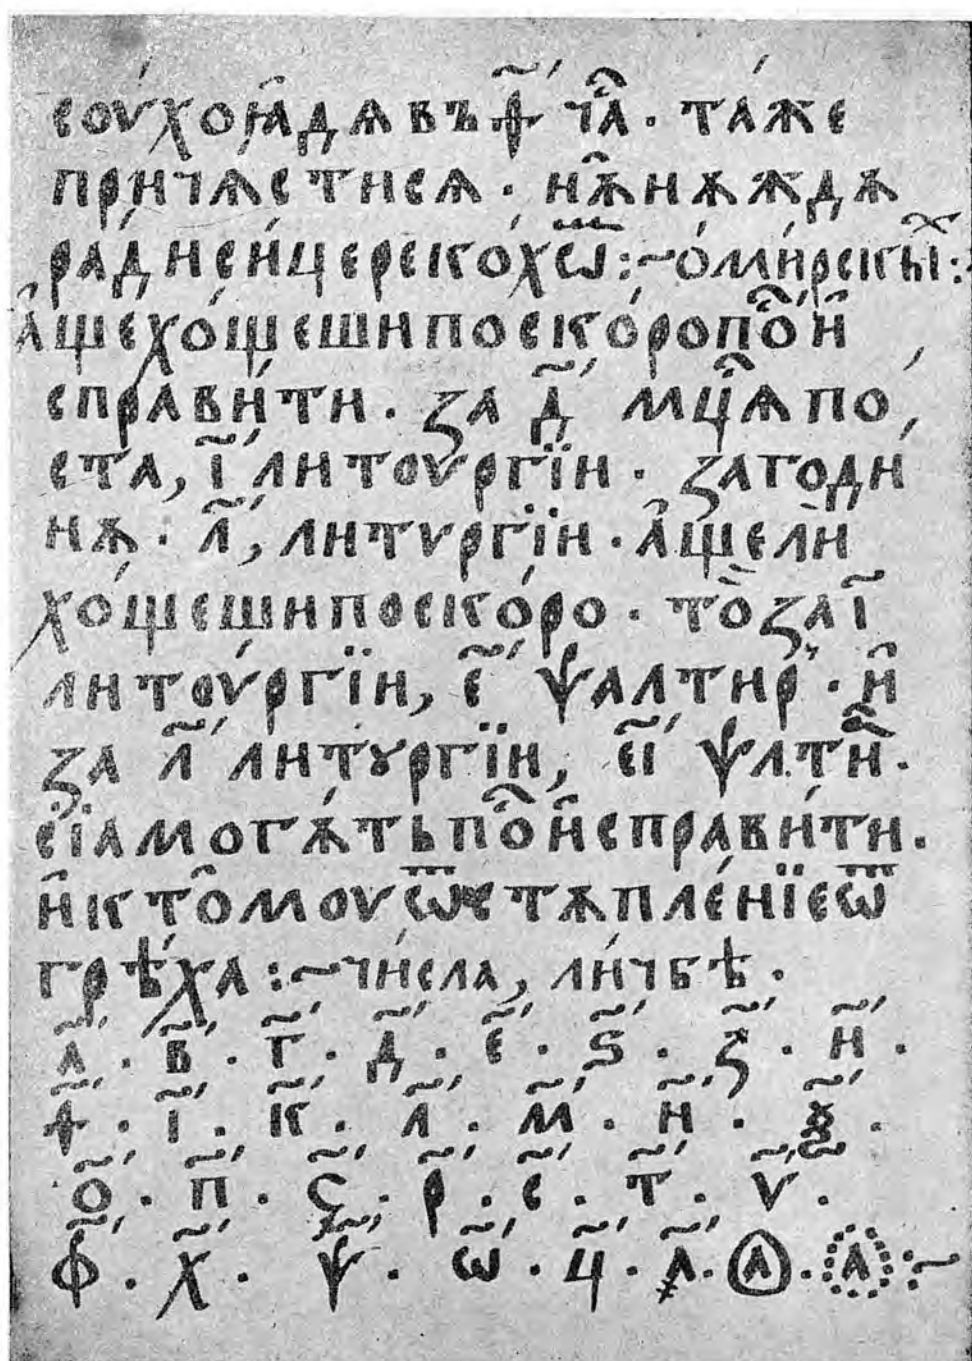 соу́хоꙗ҆дѧвъ ѳ҃ ча̑ · та́же
причѧстисѧ · нѫ̑нѫждѫ
ра́дисѝцерско́хѿ :~ о́ми́рскы̑ :·
а҆́щехо́щешипоско́ропо̑и҆
справи́ти · ꙁа д҃ мцѧ̑по
ста, і҃ литоургїи · ꙁагоди
нѫ · л҃, литѵргїи · а҆щели
хо́щешипоско́ро · то̀ꙁаі҃
литоу́ргїи, е҃ ѱалтир̾ · и҆
ꙁа л҃ литꙋргїи, еі҃ ѱл.ти̑ ·
сїамогѫ́тьпо̑и҆справи́ти ·
и҆кто̑моуѿстѫпле́нїеѿ
грѣ́ха :~ чи́сла, ли́чбѣ ·
а҃ · в҃ · г҃ · д҃ · е҃ · ѕ҃ · ꙁ҃ · и҃ ·
ѳ҃ · і҃ · к҃ · л҃ · м҃ · н҃ · ѯ҃ ·
о҃ · п҃ · ҁ҃ · р҃ · с҃ · т҃ · ѵ҃ ·
ф҃ · х҃ · ѱ҃ · ѡ҃ · ц҃ · ҂а҃ · а⃝ · а҈ :~